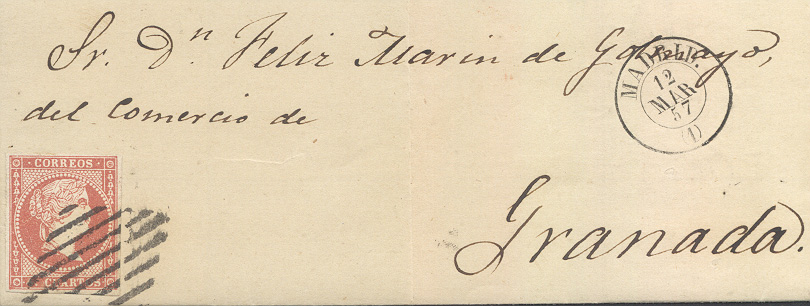 Sr. Dn. Feliz Marin de
del Comercio de
Granada.
MADRID.
12
MAR
57
(1)
CORREOS
CUARTOS